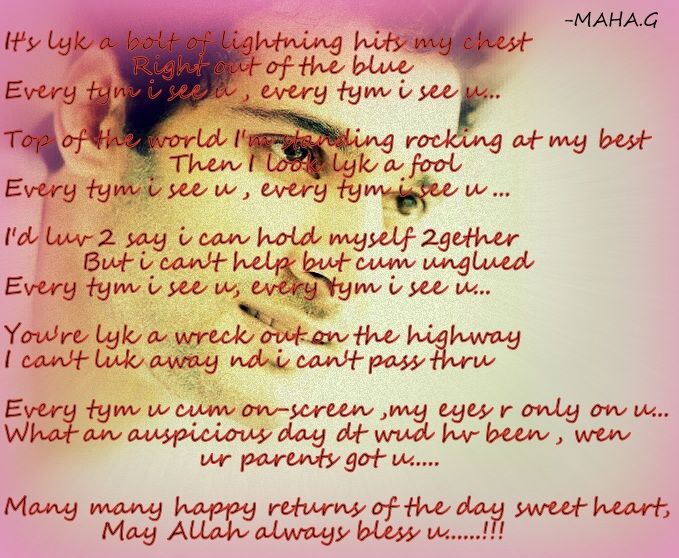 -MAHA.G
It's lyk a bolt of lightning hits my chest
Right out of the blue
Every tym i see u , every tym i see u...
Top of the world I'm standing rocking at my best
Then I look lyk a fool
Every tym i see u , every tym i see u ...
I'd luv 2 say i can hold myself 2gether
But i can't help but cum unglued
Every tym i see u, every tym i see u...
You're lyk a wreck out on the highway
I can't luk away nd i can't pass thru
Every tym u cum on-screen ,my eyes r only on u...
What an auspicious day dt wud hv been , wen
ur parents got u.....
Many many happy returns of the day sweet heart,
May Allah always bless u......!!!